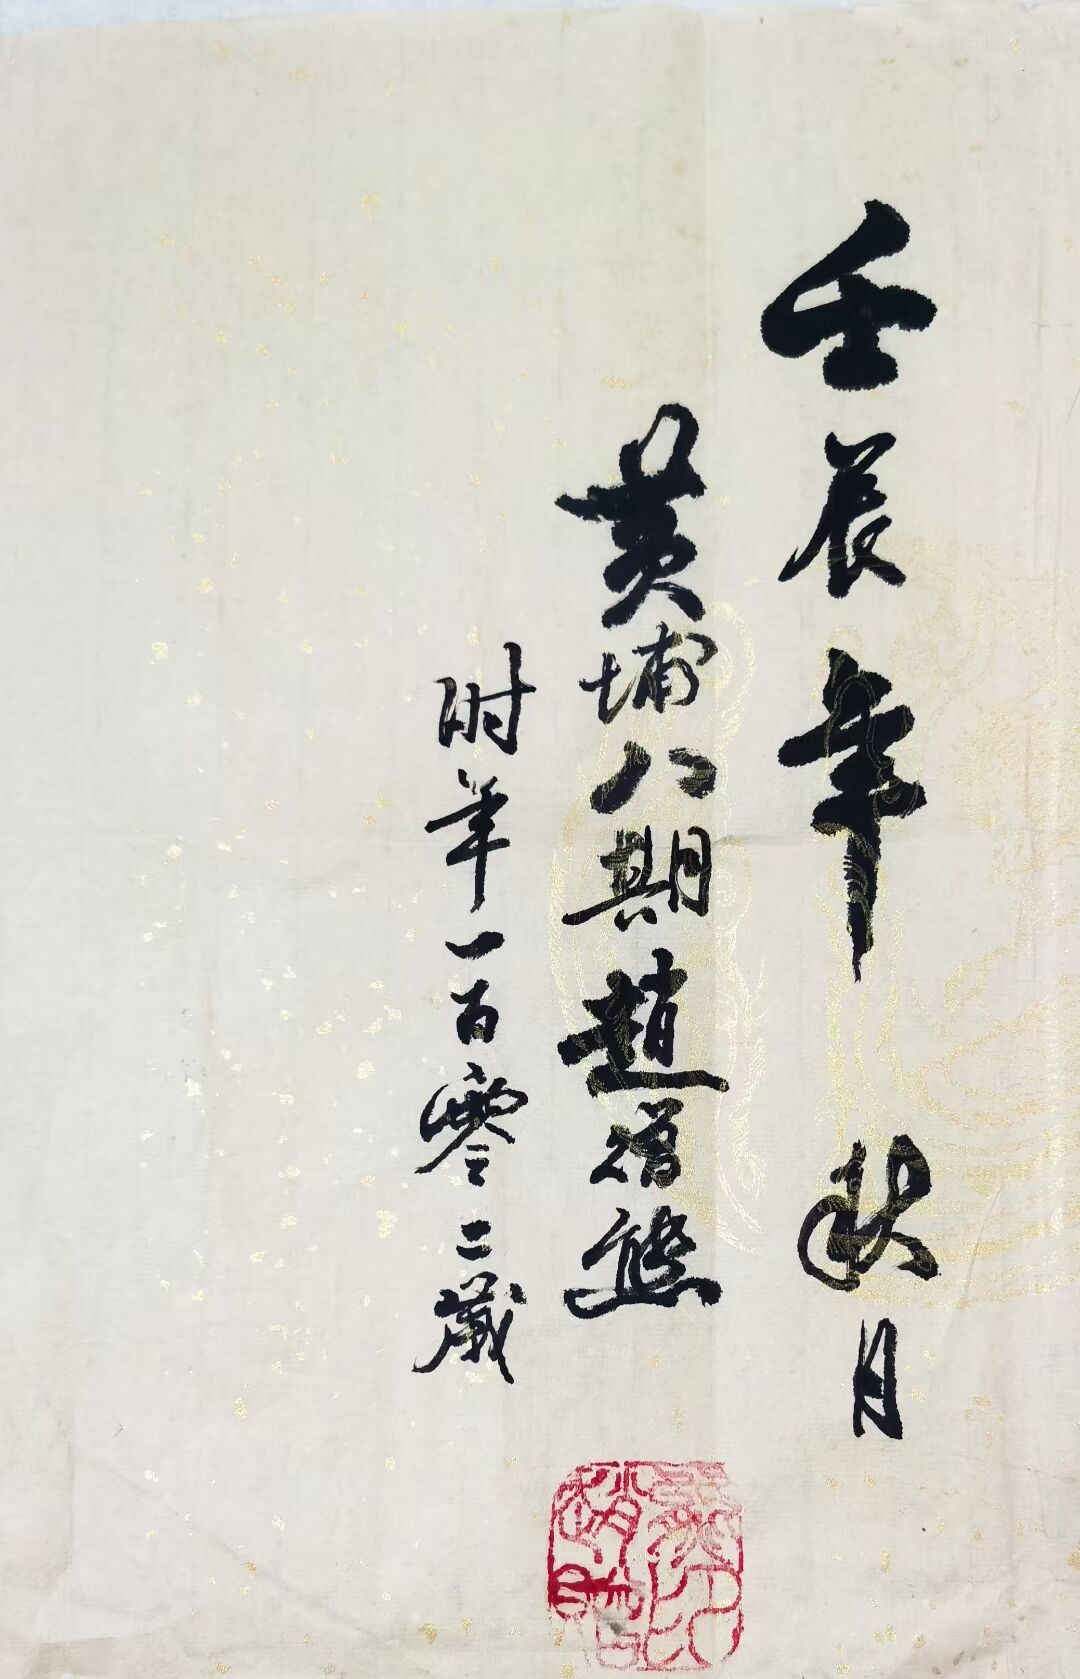 壬辰年 秋月
黄埔八期趙
时年一百零二歲